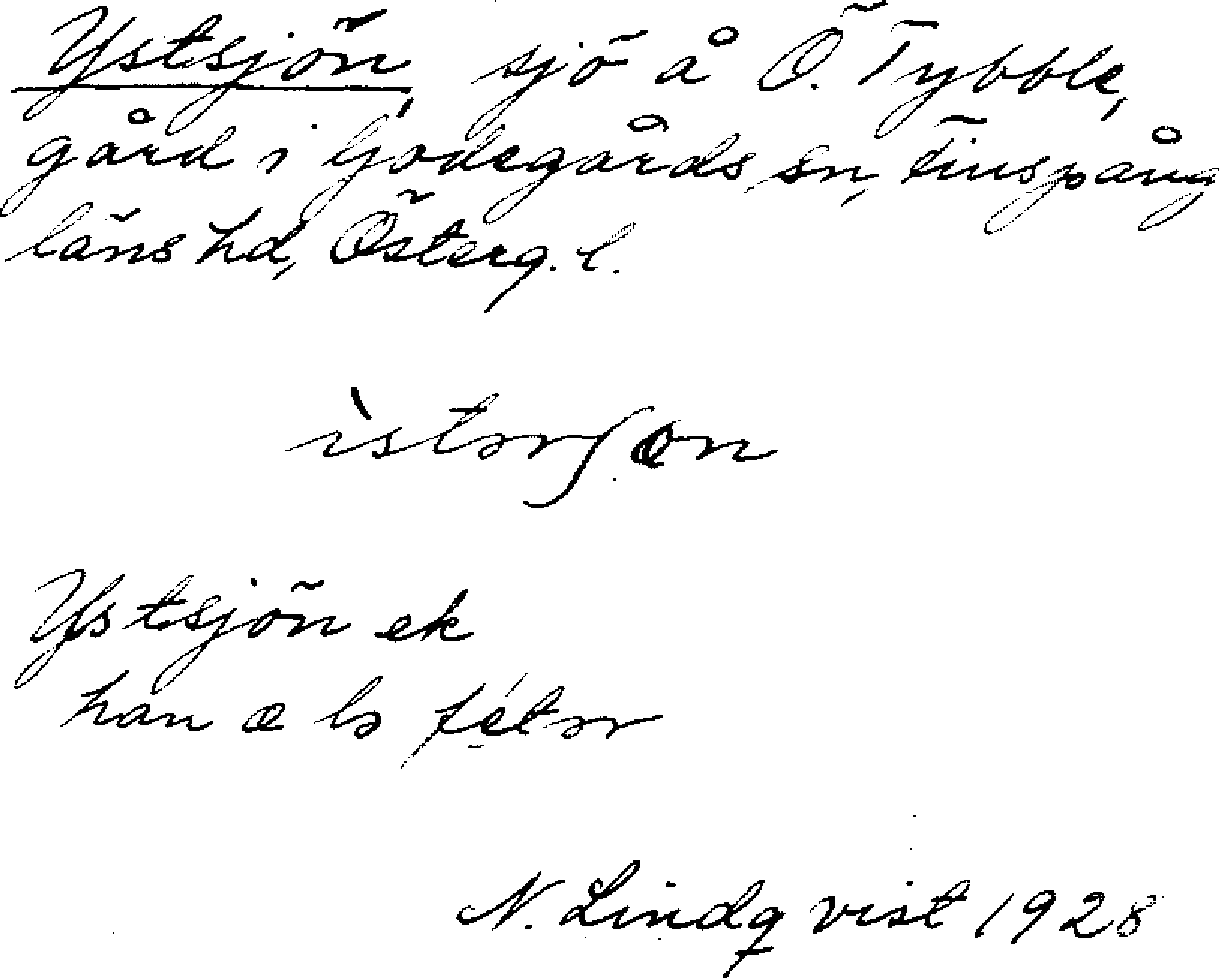 Ystsjön, sjö å Ö. Tybble,
gård i Godegårds sn, Finspång
läns hd, Österg. l.
ìstərʃøn
Ystsjön ek
han æ lə
N. Lindqvist 1928